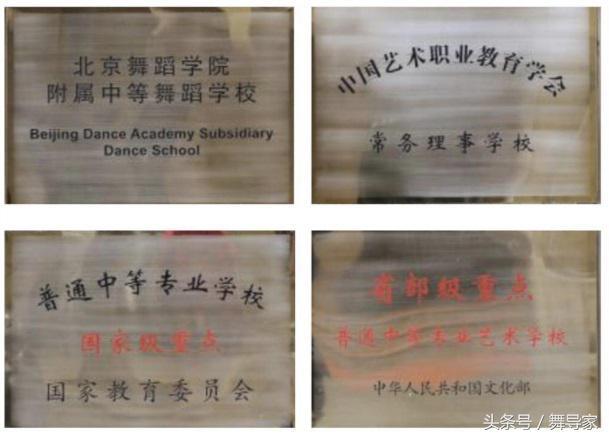 北京舞蹈学院
附属中等舞蹈学校
Beijing Dance Academy Subsidiary
Dance School
中国艺术职业教育学会
常务理事学校
普通中等专业学校
国家级重点
国家教育委员会
省部级重点
普通中等专业艺术学校
中华人民共和国文化部
头条号 / 舞导家